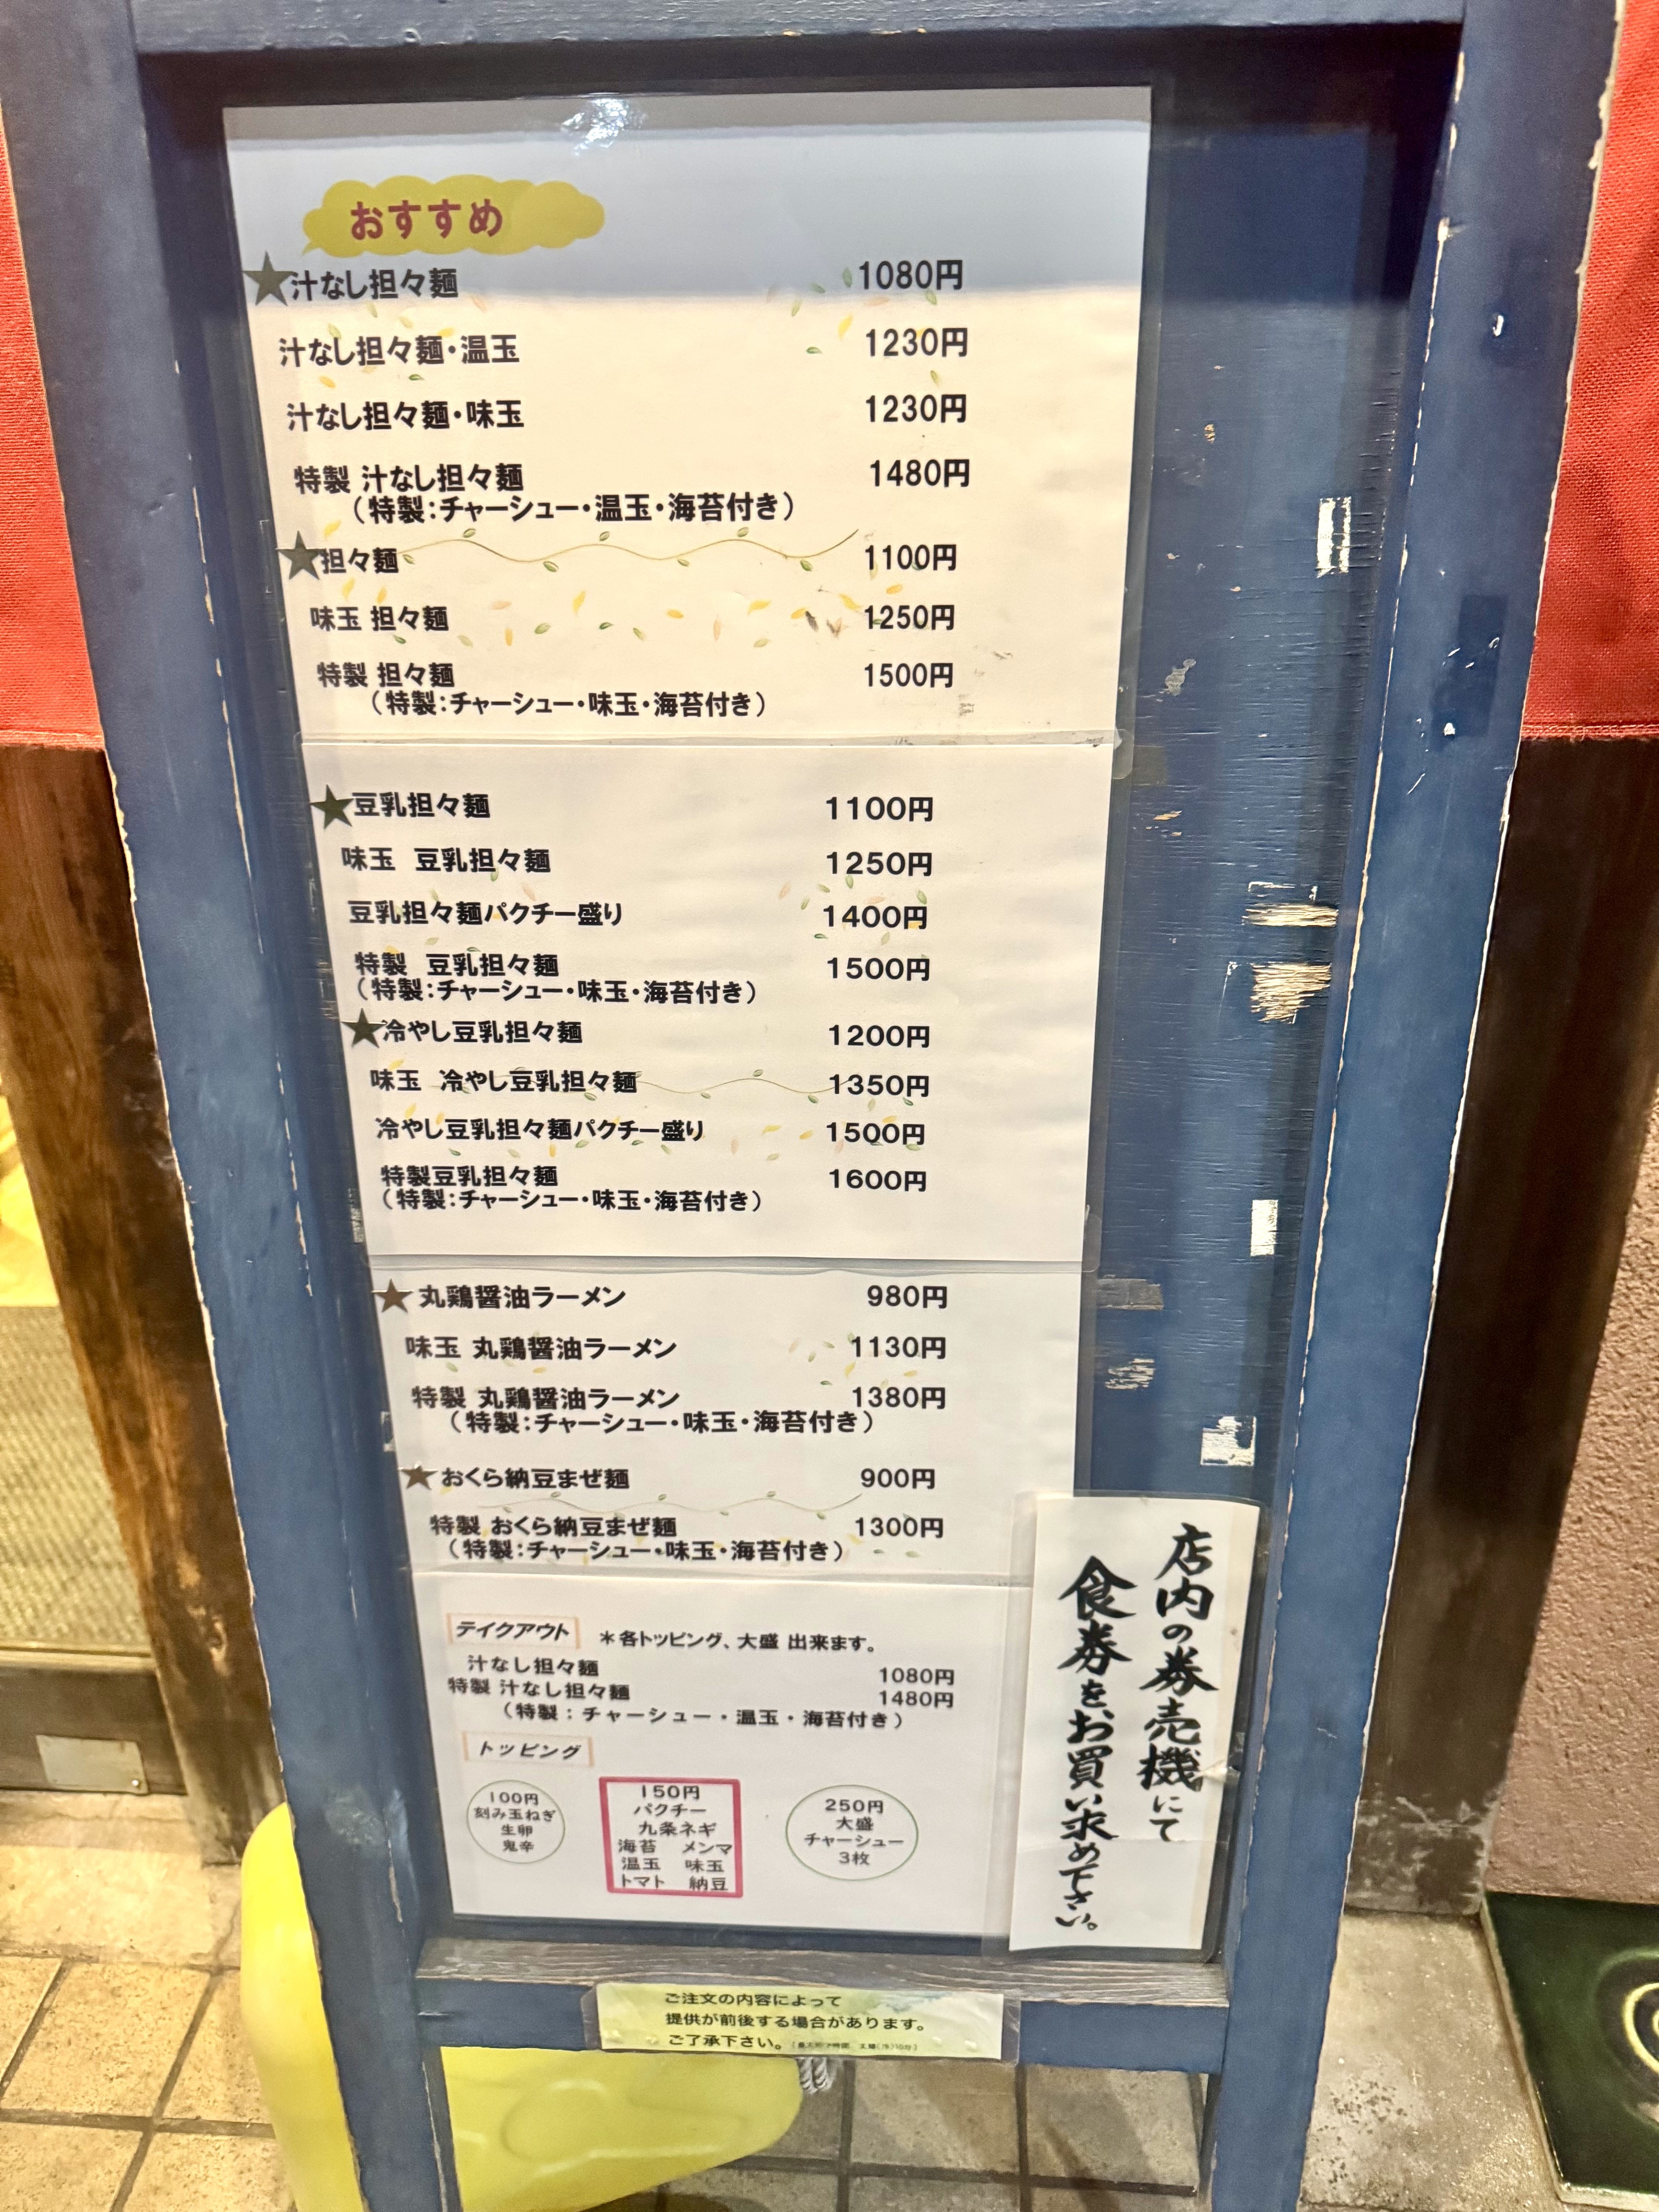 おすすめ
★汁なし担々麺 1080円
汁なし担々麺・温玉 1230円
汁なし担々麺・味玉 1230円
特製 汁なし担々麺 1480円
（特製：チャーシュー・温玉・海苔付き）
★担々麺 1100円
味玉 担々麺 1250円
特製 担々麺 1500円
（特製：チャーシュー・味玉・海苔付き）
★豆乳担々麺 1100円
味玉 豆乳担々麺 1250円
豆乳担々麺パクチー盛り 1400円
特製 豆乳担々麺 1500円
（特製：チャーシュー・味玉・海苔付き）
★冷やし豆乳担々麺 1200円
味玉 冷やし豆乳担々麺 1350円
冷やし豆乳担々麺パクチー盛り 1500円
特製豆乳担々麺 1600円
（特製：チャーシュー・味玉・海苔付き）
★丸鶏醤油ラーメン 980円
味玉 丸鶏醤油ラーメン 1130円
特製 丸鶏醤油ラーメン 1380円
（特製：チャーシュー・味玉・海苔付き）
★おくら納豆まぜ麺 900円
特製 おくら納豆まぜ麺 1300円
（特製：チャーシュー・味玉・海苔付き）
テイクアウト ＊各トッピング、大盛 出来ます。
汁なし担々麺 1080円
特製 汁なし担々麺 1480円
（特製：チャーシュー・温玉・海苔付き）
トッピング
100円
刻み玉ねぎ
生卵
鬼辛
150円
パクチー
九条ネギ
海苔 メンマ
温玉 味玉
トマト 納豆
250円
大盛
チャーシュー
3枚
店内の券売機にて
食券をお買い求め下さい。
ご注文の内容によって
提供が前後する場合があります。
ご了承下さい。